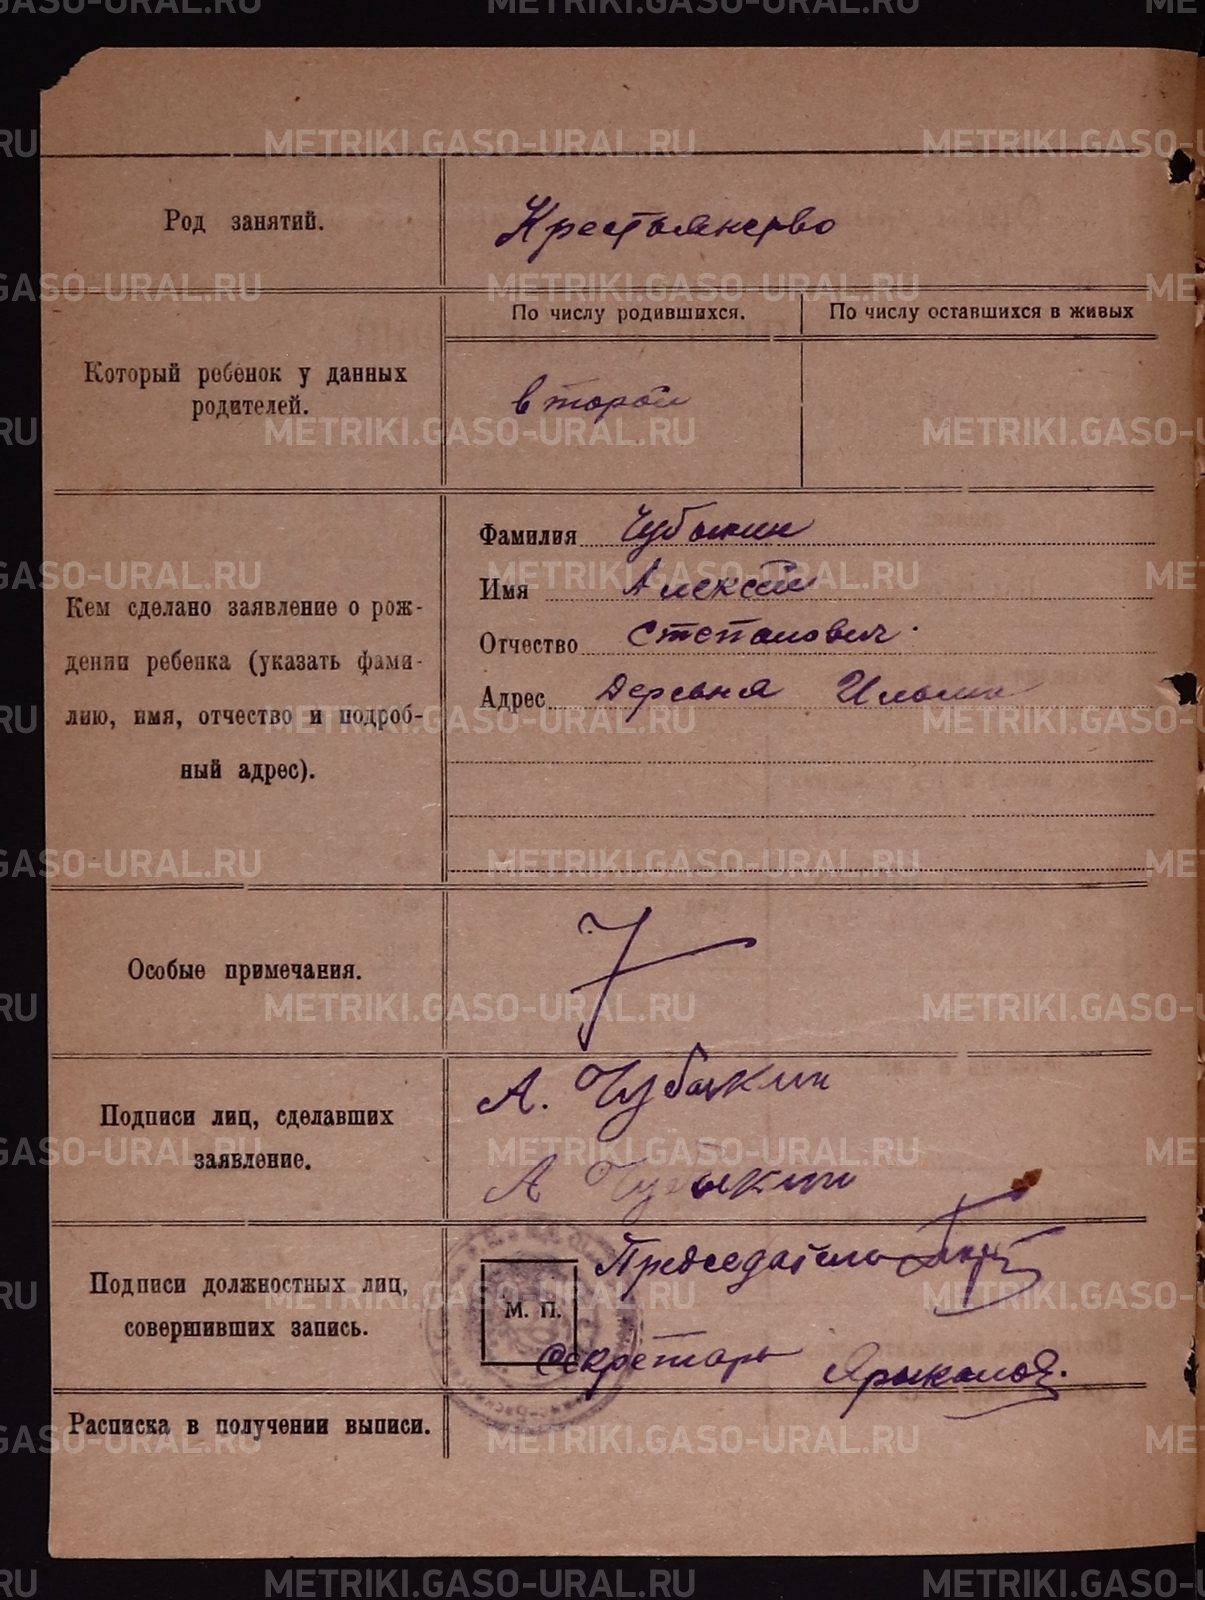 Род занятий.
Крестьянство
Который ребенок у данных
родителей.
По числу родившихся.
По числу оставшихся в живых
второй
Кем сделано заявление о рож-
дении ребенка (указать фами-
лию, имя, отчество и подроб-
ный адрес).
Фамилия Чубыкин
Имя Алексей
Отчество Степанович.
Адрес Деревня
Особые примечания.
Подписи лиц, сделавших
заявление.
А. Чубыкин
А Чубыкин
Подписи должностных лиц,
совершивших запись.
М. П.
Председатель
Секретарь
Расписка в получении выписи.
METRIKI.GASO-URAL.RU